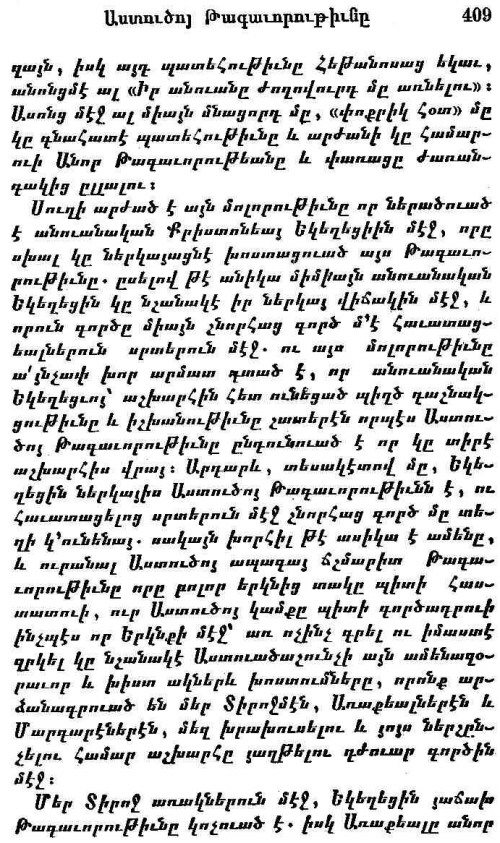 Աստուծոյ Թագաւորութիւնը 409
զայն, իսկ այդ պատեհութիւնը Հեթանոսաց եկաւ,
անոնցմէ ալ «Իր անուանը ժողովուրդ մը առնելու»։
Ասոնց մէջ ալ միայն մնացորդ մը, «փոքրիկ հօտ» մը
կը գնահատէ պատեհութիւնը և արժանի կը համար-
ուի Անոր Թագաւորութեանը և փառացը ժառան-
դակից ըլլալու։
Սուղի արժած է այն մոլորութիւնը որ ներածուած
է անուանական Քրիստոնեայ Եկեղեցիին մէջ, որը
սխալ կը ներկայացնէ խոստացուած այս Թագաւո-
րութիւնը. ըսելով թէ անիկա միմիայն անուանական
Եկեղեցին կը նշանակէ իր ներկայ վիճակին մէջ, և
որուն գործը միայն շնորհաց գործ մ'է հաւատաց-
եալներուն սրտերուն մէջ. ու այս մոլորութիւնը
ա՛յնչափ խոր արմատ գտած է, որ անուանական
Եկեղեցւոյ՝ աշխարհին հետ ունեցած պիղծ դաշնակ-
ցութիւնը և իշխանութիւնը շատերէն որպէս Աստու-
ծոյ Թագաւորութիւնը ընդունուած է որ կը տիրէ
աշխարհիս վրայ։ Արդարև, տեսակէտով մը, Եկե-
ղեցին ներկայիս Աստուծոյ Թագաւորութիւնն է, ու
հաւատացելոց սրտերուն մէջ շնորհաց գործ մը տե-
ղի կ'ունենայ. սակայն խորհիլ թէ ասիկա է ամենը,
և ուրանալ Աստուծոյ ապագայ ճշմարիտ Թագա-
ւորութիւնը որը բոլոր երկնից տակը պիտի հաս-
տատուի, ուր Աստուծոյ կամքը պիտի գործադրուի
ինչպէս որ Երկնքի մէջ՝ առ ոչինչ գրել ու իմաստէ
զրկել կը նշանակէ Աստուածաշունչի այն ամենազօ-
րաւոր և խիստ ակներև խոստումները, որոնք ար-
ձանագրուած են մեր Տիրոջմէն, Առաքեալներէն և
Մարգարէներէն, մեզ խրախուսելու և յոյս ներշըն-
չելու համար աշխարհը յաղթելու դժուար գործին
մէջ։
Մեր Տիրոջ առակներուն մէջ, Եկեղեցին յաճախ
Թագաւորութիւնը կոչուած է. իսկ Առաքեալը անոր